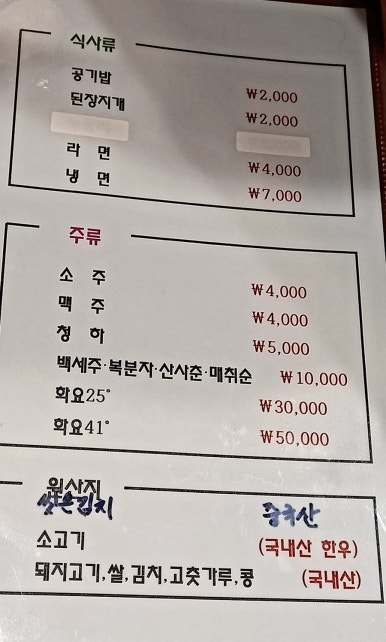 식사류
공기밥 ₩2,000
된장지개 ₩2,000
라 면 ₩4,000
냉 면 ₩7,000
주류
소 주 ₩4,000
맥 주 ₩4,000
청 하 ₩5,000
백세주·복분자·산사춘·매취순 ₩10,000
화요25° ₩30,000
화요41° ₩50,000
원산지
썩은김치 중국산
소고기 (국내산 한우)
돼지고기,쌀,김치,고춧가루,콩 (국내산)